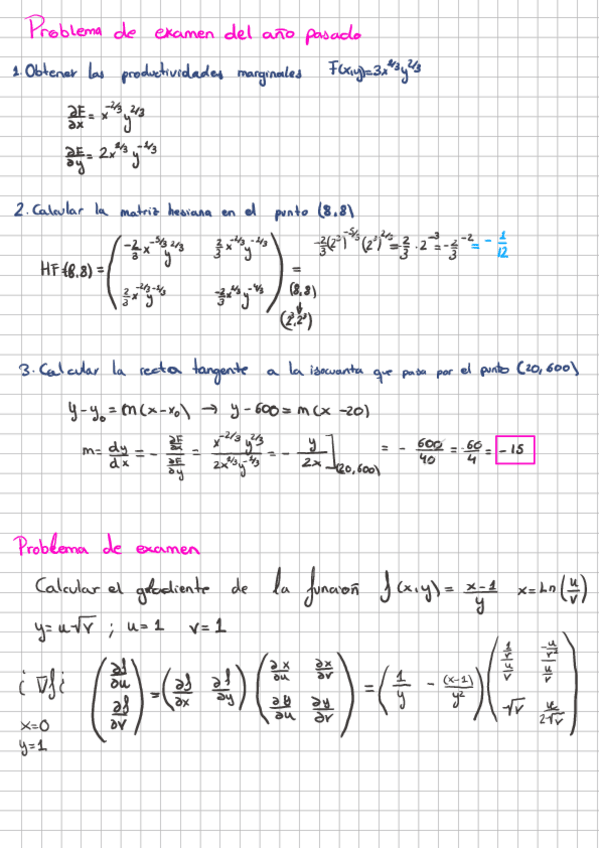 Problema de examen del año pasado
1. Obtener las productividades marginales F(x,y)=3x^{1/3}y^{2/3}
∂F/∂x = x^{-2/3}y^{2/3}
∂F/∂y = 2x^{1/3}y^{-1/3}
2. Calcular la matriz hesiana en el punto (8,8)
HF(8,8) = ( -2/3 x^{-5/3}y^{2/3} 2/3 x^{-2/3}y^{-1/3} ; 2/3 x^{-2/3}y^{-1/3} -2/3 x^{1/3}y^{-4/3} ) = (8,8) ↓ (2³,2³)
-2/3 (2³)^{-5/3} (2³)^{2/3} = 2/3 · 2^{-3} = -2/3^{-2} = -1/12
3. Calcular la recta tangente a la isocuanta que pasa por el punto (20,600)
y-y₀ = m(x-x₀) → y-600 = m(x-20)
m = dy/dx = - ∂F/∂x / ∂F/∂y = x^{-2/3}y^{2/3} / 2x^{1/3}y^{-1/3} = - y/2x ](20,600) = - 600/40 = -60/4 = -15
Problema de examen
Calcular el gradiente de la función f(x,y) = x-1/y x=Ln(u/v)
y=u√v ; u=1 v=1
¿ ∇f ¿ (∂f/∂u ; ∂f/∂v) = (∂f/∂x ∂f/∂y) (∂x/∂u ∂x/∂v ; ∂y/∂u ∂y/∂v) = (1/y - (x-1)/y²) (1/v / u/v -u/v² / u/v ; √v u/2√v)
x=0
y=1